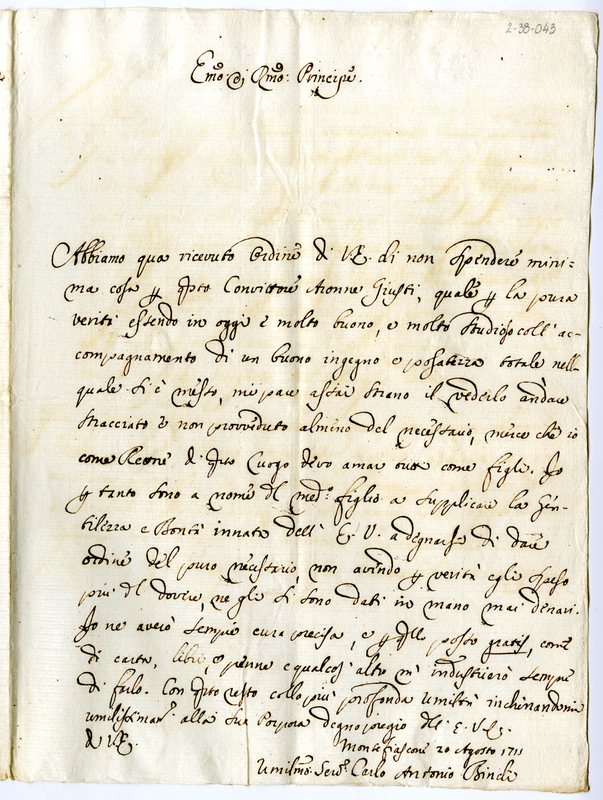 2-38-043
Emo: e Rmo: Principe.
Abbiamo qua ricevuto ordine di V.E. di non spendere mini=
ma cosa p qsto Convittore Aronne Giusti, quale p la pura
verità essendo in oggi è molto buono, e molto studioso coll' ac-
compagnamento di un buono ingegno e posatezza totale nella
quale si è messo, mi pare assai strano il vederlo andare
stracciato e non provveduto almeno del necessario, mercè che io
come Rettore di qsto luogo devo amar tutti come figli. Io
p tanto sono a nome del med.o figlio a supplicare la Gen-
tilezza e Bontà innata dell' E. V. a degnarsi di dare
ordine del puro necessario, non avendo p verità egli speso
più del dovere, ne gli si sono dati in mano mai denari.
Io ne averò sempre cura precisa, e p qllo posso gratis, come
di carta, libri e penne e qualcos' altro m' industrierò sempre
di farlo. Con qsto resto colla più profonda umiltà inchinandomi
umilissimam.e alla Sua Porpora degno pregio dell' E. V.
di V.E.
Montefiascone 20 Agosto 1711
Umilmo: Serv.e Carlo Antonio Bindi